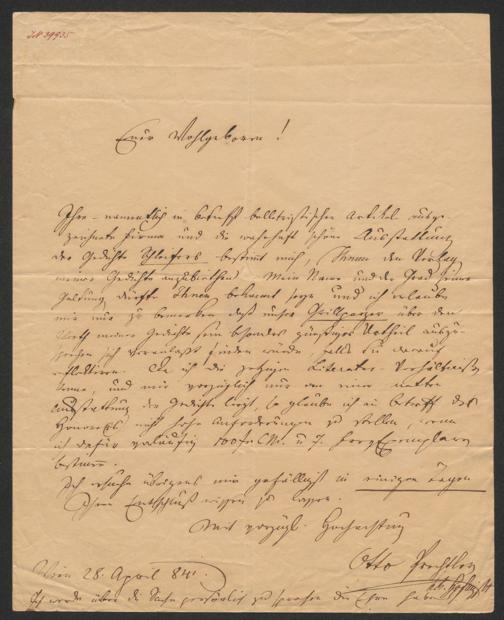 IN 39935
Euer Wohlgeboren!
Ihre – namentlich in betreff belletristischer Artikel ausge-
zeichnete Firma und die wahrhaft schöne Ausstattung
der Gedichte Schleifers bestimmt mich, Ihnen den Verlag
meiner Gedichte anzubiethen. Mein Name und der Grad seiner
Geltung dürfte Ihnen bekannt seyn und ich erlaube
mir nur zu bemerken daß unser Grillparzer über den
Werth meiner Gedichte sein besonders günstiges Urtheil auszu-
sprechen sich veranlaßt finden würde, falls Sie darauf
reflectiren. Da ich die jetzigen Literatur-Verhältnisse
kenne, und mir vorzüglich nur an einer netten
Ausstattung der Gedichte liegt, so glaube ich in betreff des
Honorars nicht hohe Anforderungen zu stellen, wenn
ich dafür vorläufig 100 fl CM. u. Freyexemplare
bestimme.
Ich ersuche übrigens mir gefälligst in einigen Tagen
Ihren Entschluß wissen zu lassen.
Mit vorzügl. Hochachtung
Otto Prechtler
Wien 28. April 841.
Ich werde über die Sache persönlich zu sprechen die Ehre haben